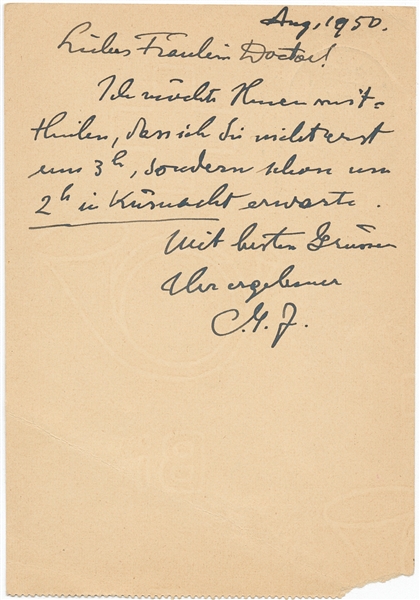 Aug, 1950.
Liebes Fräulein Doctor!
Ich möchte Ihnen mit-
theilen, dass ich Sie nicht erst
um 3h, sondern schon um
2h in Küsnacht erwarte.
Mit besten Grüssen
Ihr ergebener
C. G. J.